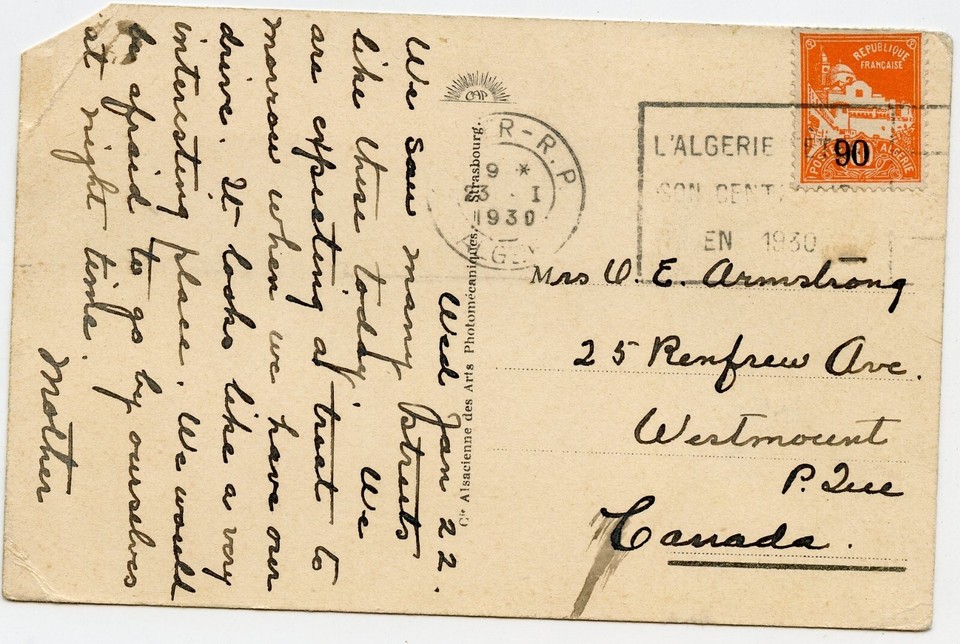 Wed Jan 22.
We saw many streets
like these today. We
are expecting a treat to
morrow when we have our
drive. It looks like a very
interesting place. We would
be afraid to go by ourselves
at night time.
Mother
CAP
Cie Alsacienne des Arts Photomécaniques, Strasbourg.
R-R.P
9 *
23 . I
1930
ALGER
L'ALGERIE
SON CENT
EN 1930
REPUBLIQUE
FRANÇAISE
90
POSTES ALGERIE
Mrs W. E. Armstrong
25 Renfrew Ave.
Westmount
P. Que
Canada.